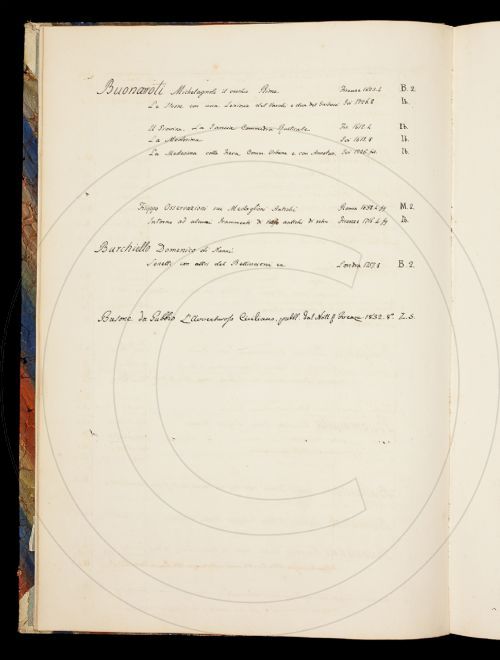 Buonaroti Michelagnolo il vecchio Rime Firenze 1623.4 B. 2.
Le Stesse con una Lezione del Varchi e due del Ivi 1726.8 Ib.
Il La Tancia Commedia Rusticale Fir 1612.4 Ib.
La Medesima Ivi 1638.8 Ib.
La Medesima colla Fiera Comm. Urbana e con Annotaz. Ivi 1726.fo. Ib.
Filippo Osservazioni sui Medaglioni Antichi Roma 1698.4 fig M. 2.
Intorno ad alcuni frammenti di vasi antichi di vetro Firenze 1716.4 fig Ib.
Burchiello Domenico di Nanni
Sonetti con altri del Bellincioni ec Londra 1757.8 B. 2.
Busone da Gubbio L'Avventuroso Ciciliano, pubbl. dal Nott. Firenze 1832. 8º. Z. 5.
C